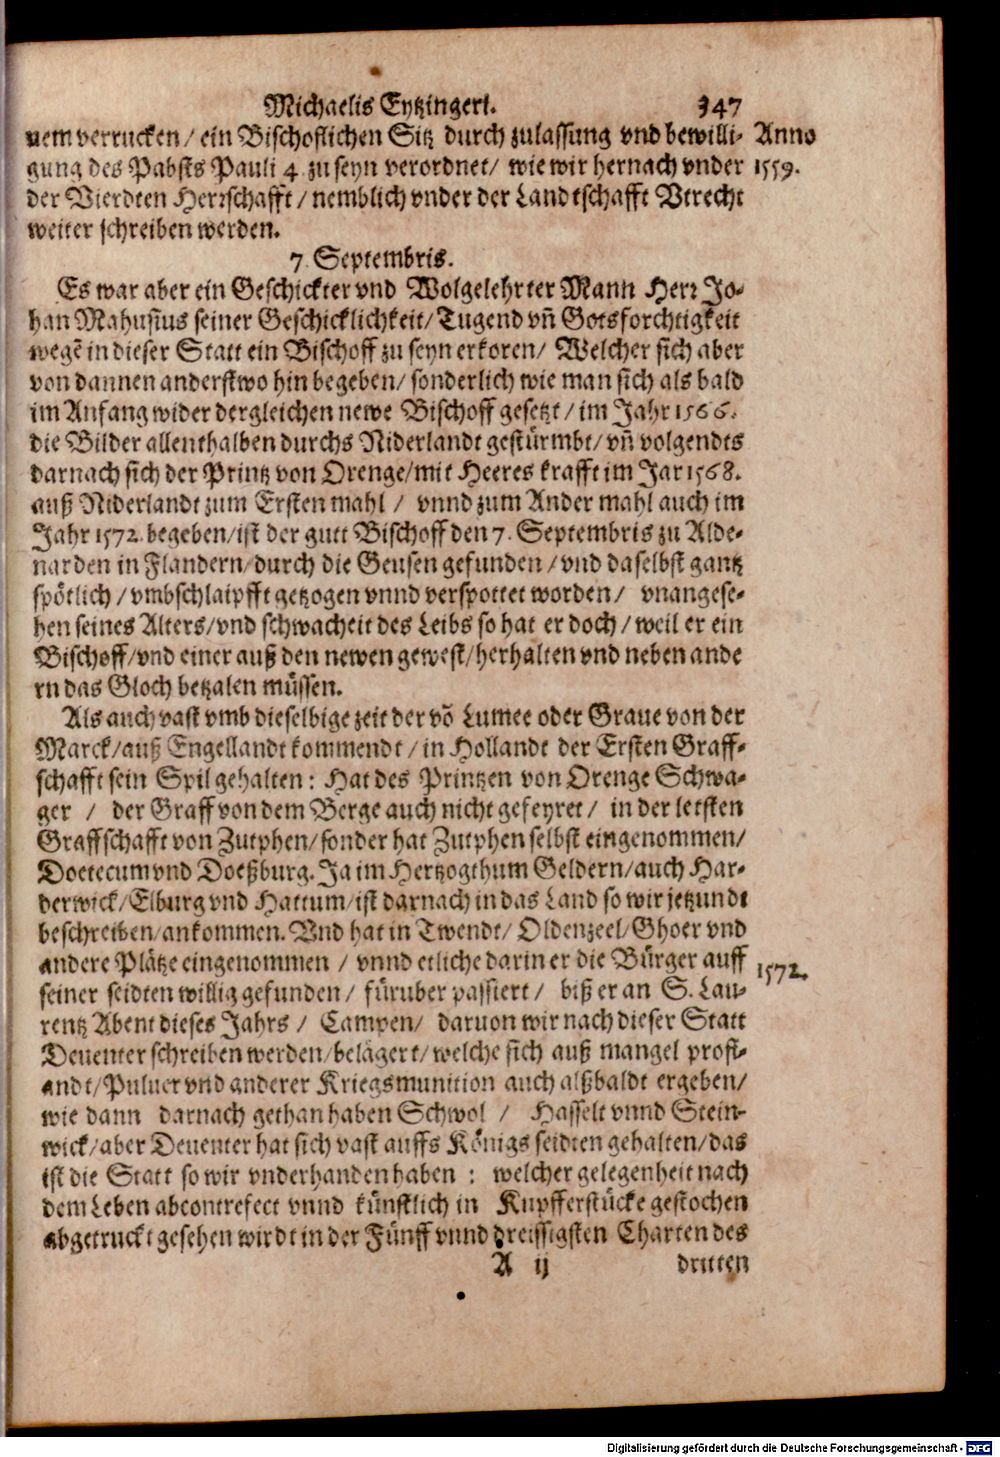 Michaelis Eytzingeri. 347
nem verrucken / ein Bischoflichen Sitz durch zulassung vnd bewilli- Anno
gung des Pabsts Pauli 4 zu seyn verordnet / wie wir hernach vnder 1559.
der Vierdten Herrschafft / nemblich vnder der Landtschafft Vtrecht
weiter schreiben werden.
7 Septembris.
Es war aber ein Geschickter vnd Wolgelehrter Mann Herr Jo-
han Mahusius seiner Geschicklichkeit / Tugend vñ Gotsforchtigkeit
wegẽ in dieser Statt ein Bischoff zu seyn erkoren / Welcher sich aber
von dannen anderstwo hin begeben / sonderlich wie man sich als bald
im Anfang wider dergleichen newe Bischoff gesetzt / im Jahr 1566.
die Bilder allenthalben durchs Niderlandt gestürmbt / vñ volgendts
darnach sich der Printz von Orenge / mit Heeres krafft im Jar 1568.
auß Niderlandt zum Ersten mahl / vnnd zum Ander mahl auch im
Jahr 1572. begeben / ist der gutt Bischoff den 7. Septembris zu Alde-
narden in Flandern / durch die Geusen gefunden / vnd daselbst gantz
spötlich / vmbschlaipfft getzogen vnnd verspottet worden / vnangese-
hen seines Alters / vnd schwacheit des Leibs so hat er doch / weil er ein
Bischoff / vnd einer auß den newen gewest / herhalten vnd neben ande
rn das Gloch betzalen müssen.
Als auch vast vmb dieselbige zeit der võ Lumee oder Graue von der
Marck / auß Engellandt kommendt / in Hollandt der Ersten Graff-
schafft sein Spil gehalten : Hat des Printzen von Orenge Schwa-
ger / der Graff von dem Berge auch nicht gefeyret / in der letsten
Graffschafft von Zutphen / sonder hat Zutphen selbst eingenommen /
Doetecum vnd Doeßburg. Ja im Hertzogthum Geldern / auch Har-
derwick / Elburg vnd Hattum / ist darnach in das Land so wir jetzundt
beschreiben / ankommen. Vnd hat in Twendt / Oldenzeel / Ghoer vnd
andere Plätze eingenommen / vnnd etliche darin er die Bürger auff
seiner seidten willig gefunden / füruber passiert / biß er an S. Lau- 1572.
rentz Abent dieses Jahrs / Campen / daruon wir nach dieser Statt
Deuenter schreiben werden / belägert / welche sich auß mangel profi-
andt / Puluer vnd anderer Kriegsmunition auch alßbaldt ergeben /
wie dann darnach gethan haben Schwol / Hasselt vnnd Stein-
wick / aber Deuenter hat sich vast auffs Königs seidten gehalten / das
ist die Statt so wir vnderhanden haben : welcher gelegenheit nach
dem Leben abcontrefect vnnd künstlich in Kupfferstücke gestochen
abgetruckt gesehen wirdt in der Fünff vnnd dreissigsten Charten des
A ij dritten
Digitalisierung gefördert durch die Deutsche Forschungsgemeinschaft - DFG